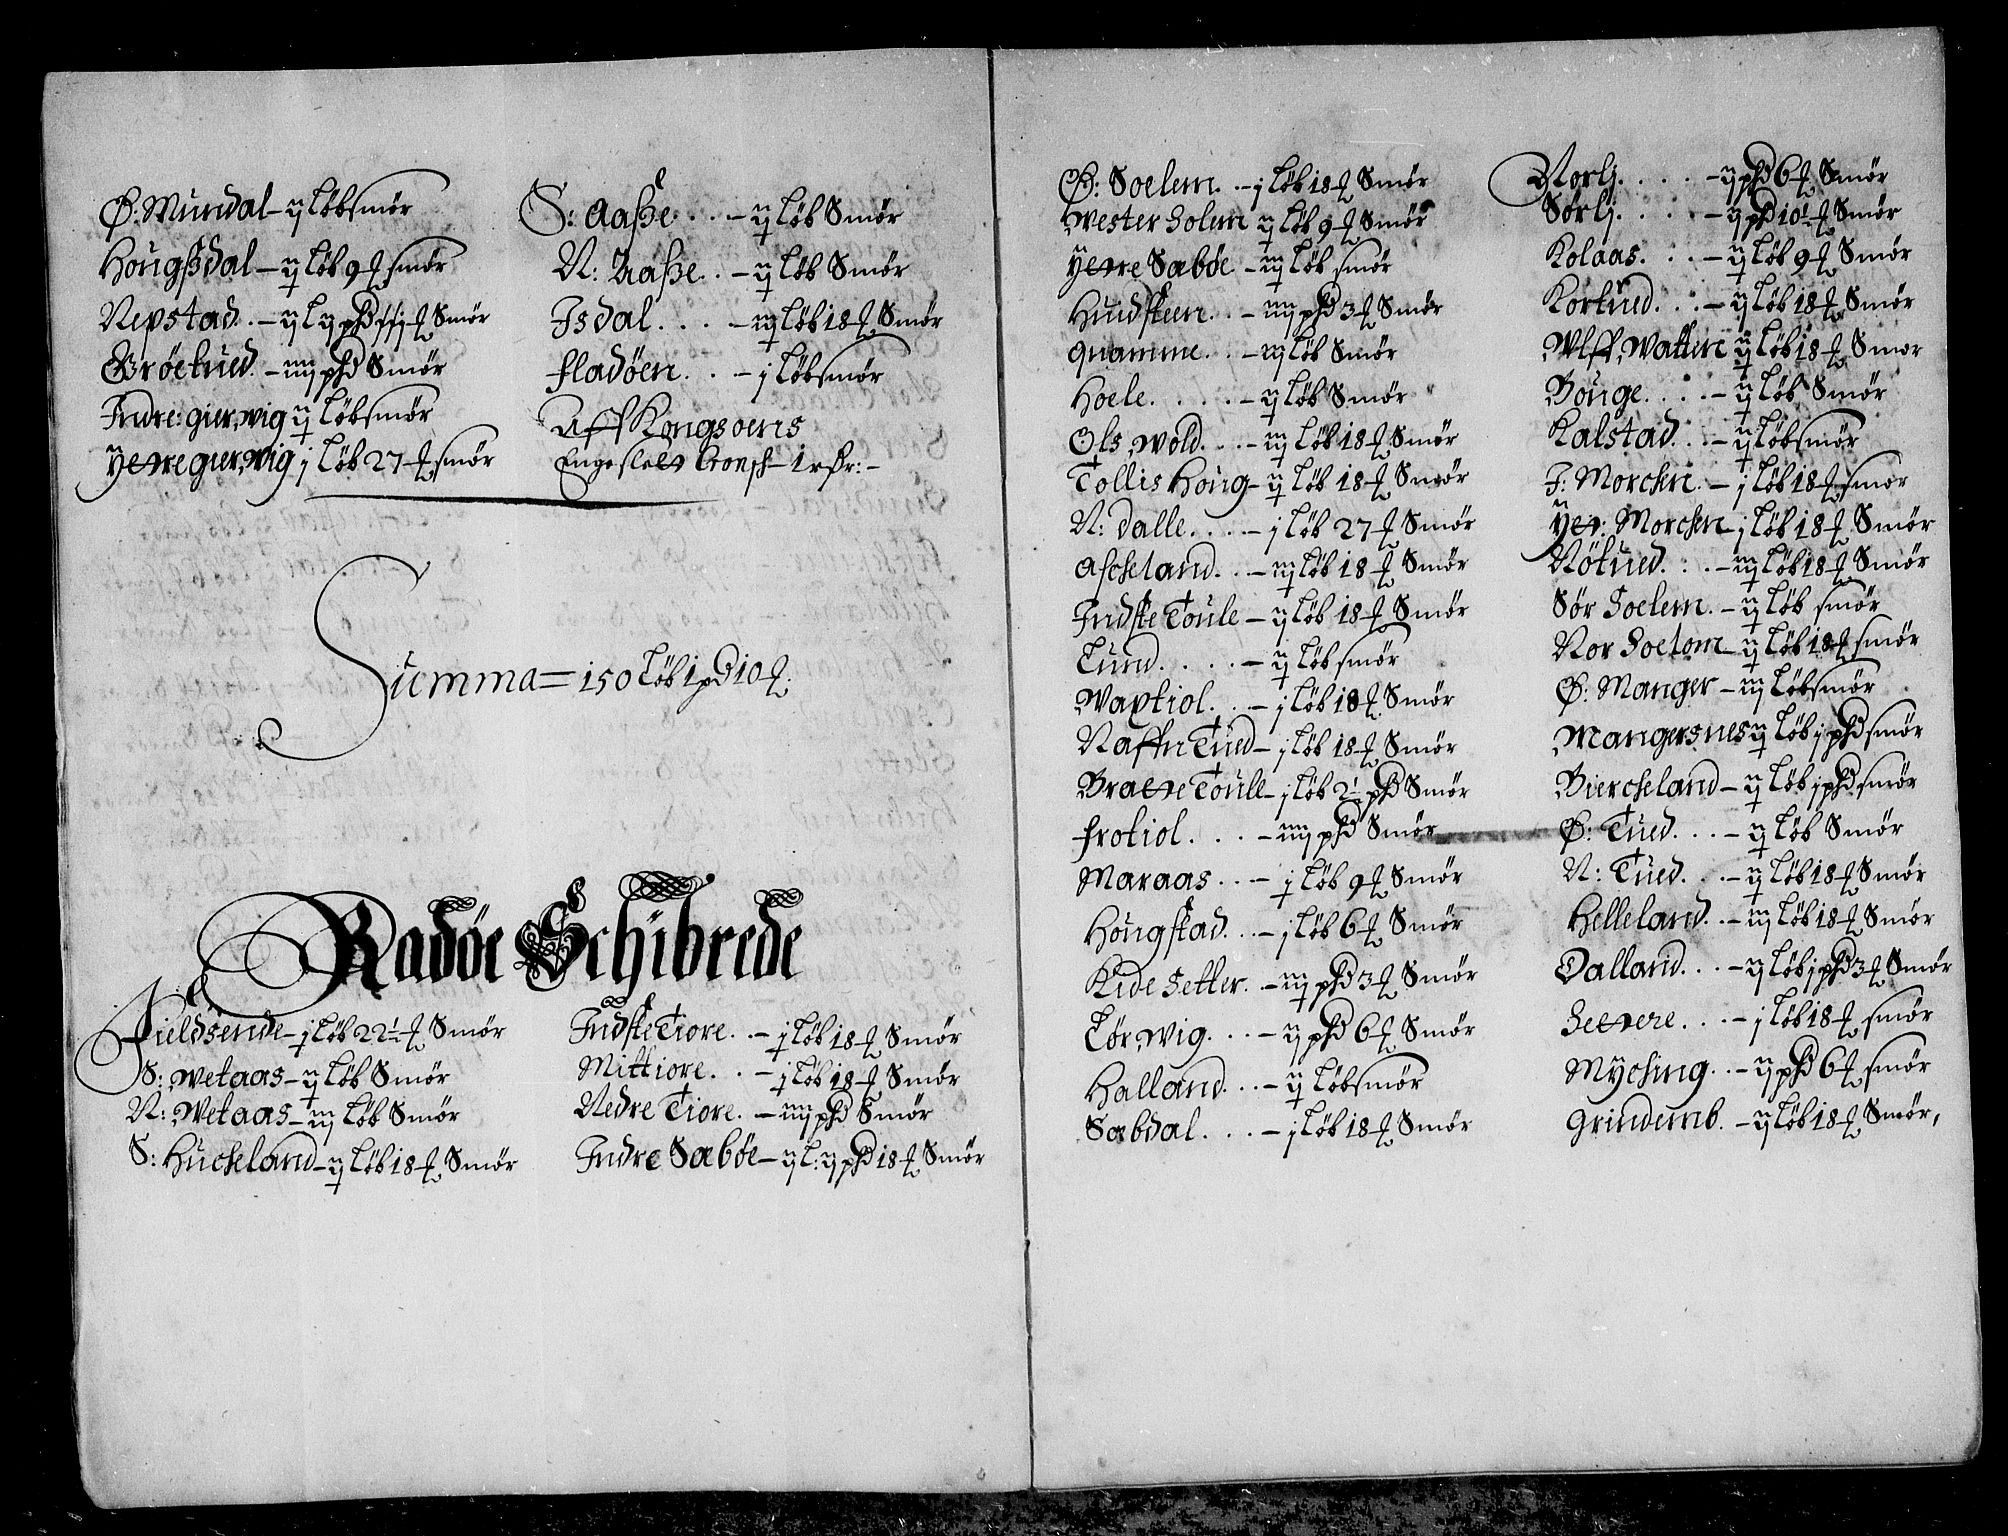 Ø: Mundal – ij Løb smør
Hougßdal – ij Løb 9 ℔ smør
Nepstad . – ij L ij phd Smør
Grøetued – iiij phd Smør
Indre: gier,wig ij Løb smør
Yttre gier,wig j Løb 27 ℔ smør
S: Aaße . . . – ij Løb Smør
N: Aaße . . – ij Løb Smør
Isdal . . . . – iij Løb 18 ℔ Smør
fladøen . . – j Løb smør
Aff Kongsoens
Engeslett
Summa = 150 Løb 1 pd 10 ℔.
Radöe Schibrede
Fieldsende – j Løb 22½ ℔ Smør
S: Wetaas – ij Løb Smør
N: Wetaas – iij Løb Smør
S: Hucheland – ij Løb 18 ℔ Smør
Indste Tiore . . – j Løb 18 ℔ Smør
Mittiore . . – j Løb 18 ℔ Smør
Nedre Tiore . – iiij phd Smør
Indre Sæbøe – ij L: ij phd 18 ℔ Smør
Ø: Soelem . . – j Løb 18 ℔ Smør
Wester Solem ij Løb 9 ℔ Smør
Yttre Sæbøe – iij Løb smør
Hundsteen . . – iiij phd 3 ℔ Smør
quamme . . – iij Løb Smør
Hoele . . . . . – ij Løb Smør
Ols,wold . . . – iij Løb 18 ℔ Smør
Tollis Houg – ij Løb 18 ℔ Smør
N: Dalle . . . . – j Løb 27 ℔ Smør
Ascheland . . – iij Løb 18 ℔ Smør
Indste Toule – ij Løb 18 ℔ Smør
Lund . . . . . – ij Løb smør
Waxtiol . . . – j Løb 18 ℔ Smør
Naffn Tued – j Løb 18 ℔ Smør
Bratte Toule – j Løb 2½ phd Smør
frotiol . . . . – iiij phd Smør
Maraas . . . – j Løb 9 ℔ Smør
Hougstad . . – j Løb 6 ℔ Smør
Kide Setter . – iij phd 3 ℔ Smør
Lør,wig . . . – ij phd 6 ℔ Smør
Halland . . . – ij Løb smør
Sæbdal . . . . – j Løb 18 ℔ Smør
Norlj . . . . . – ij phd 6 ℔ Smør
Sørlj . . . . . – ij phd 10½ ℔ Smør
Kolaas . . . – ij Løb 9 ℔ Smør
Kortued . . . – ij Løb 18 ℔ Smør
Wlff,watten ij Løb 18 ℔ Smør
Bouge . . . . – ij Løb Smør
Kalstad . . . – ij Løb smør
I: Morchen . – j Løb 18 ℔ smør
Ytt: Morchen – j Løb 18 ℔ Smør
Nøtued . . . – iij Løb 18 ℔ Smør
Sør Soelem . – ij Løb smør
Nor Soelom – ij Løb 18 ℔ smør
Ø: Manger – iij Løb smør
Mangersnes ij Løb j phd smør
Biercheland – ij Løb j phd smør
Ø: Tued . . . – ij Løb Smør
N: Tued . . . – ij Løb 18 ℔ Smør
Helleland . . – iij Løb 18 ℔ Smør
Dalland . . . – ij Løb j phd 3 ℔ Smør
Settere . . . – j Løb 18 ℔ smør
Myching . . – ij phd 6 ℔ smør
Grindemb . – ij Løb 18 ℔ Smør,